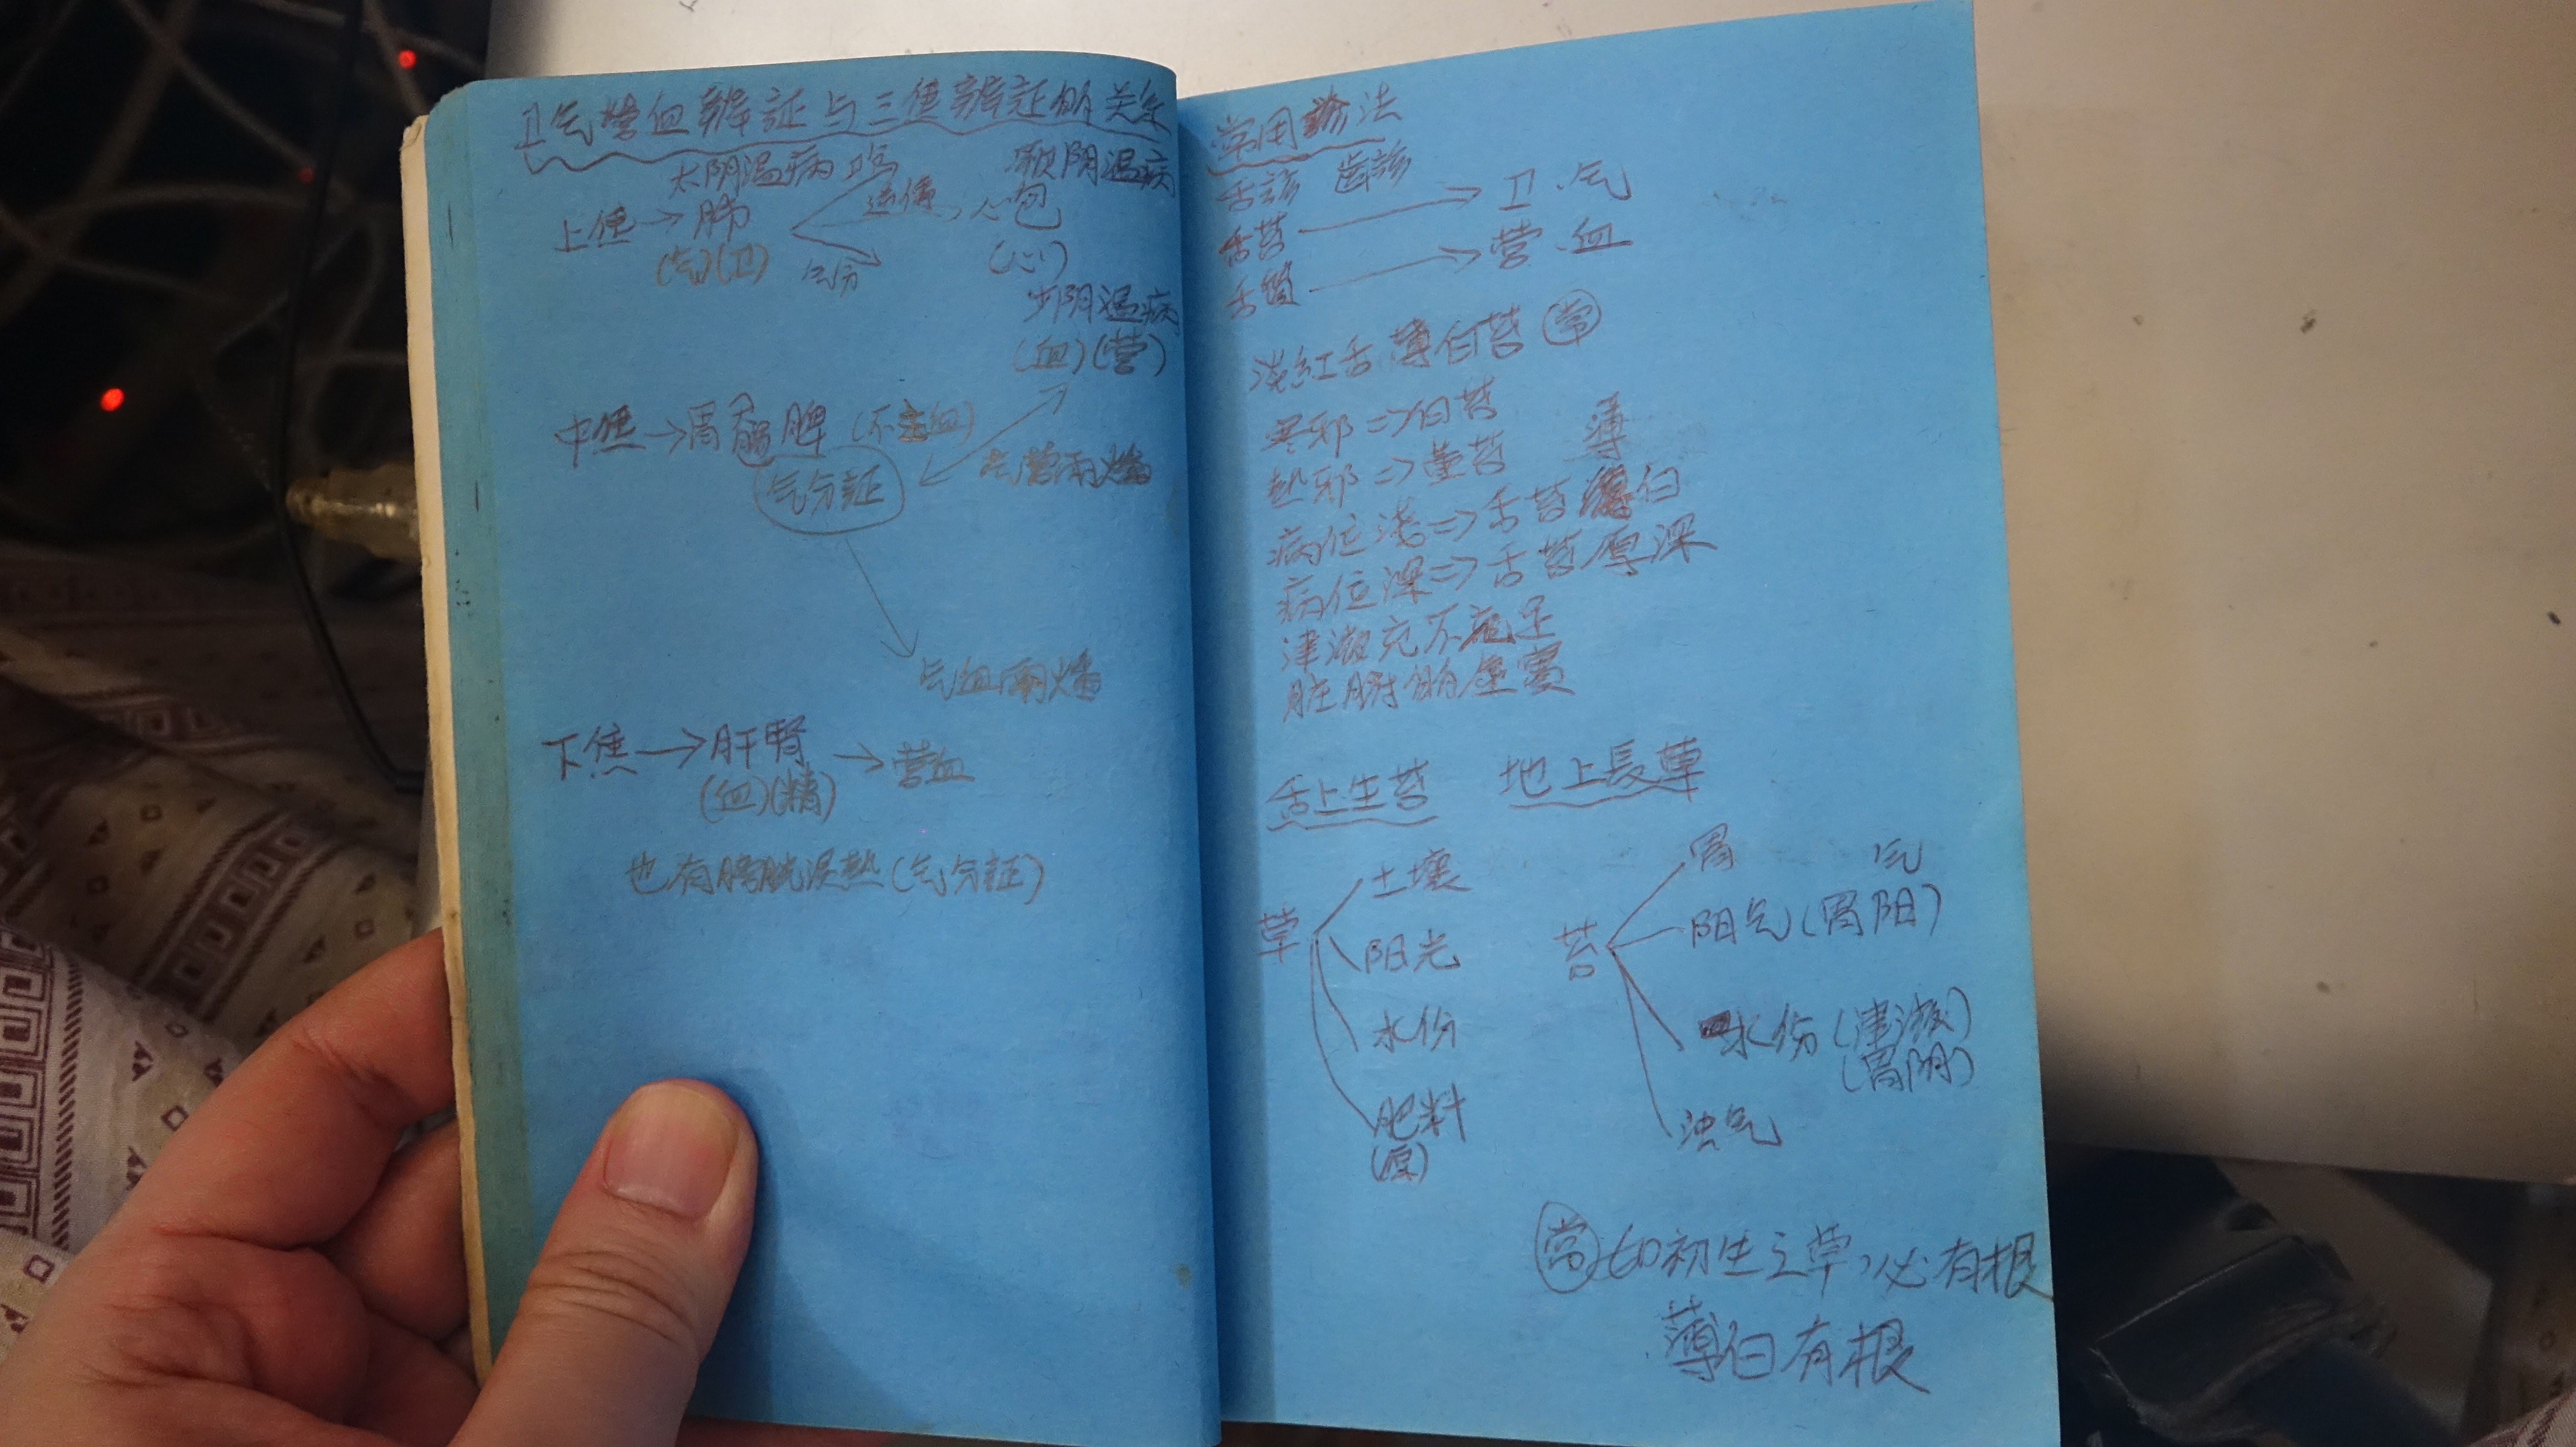 卫气营血辨証与三焦辨証的关系
太阴温病 卫气 厥阴温病
上焦→肺 逆傳 心包
(气)(卫) 气份 (心)
少阴温病
(血)(营)
中焦→胃腸脾 (不主血)
气分証 气营兩燔
气血兩燔
下焦→肝腎→营血
(血)(精)
也有膀胱湿熱(气分証)
常用診法
舌診 齒診
舌苔→卫.气
舌質→营.血
淡紅舌薄白苔 常
寒邪⇒白苔
熱邪⇒黃苔 薄
病位淺⇒舌苔 白
病位深⇒舌苔厚深
津液充不充足
脏腑的虛實
舌上生苔 地上長草
草
土壤
阳光
水份
肥料
(原)
苔
胃 气
阳气(胃阳)
水份(津液)
(胃阴)
浊气
常 如初生之草,必有根
薄白有根